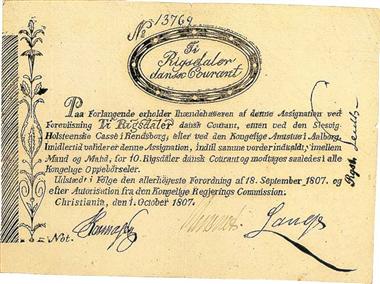 No 13769
Ti
Rigsdaler
dansk Courant
Paa Forlangende erholder Ihændehaveren af denne Assignation ved
Foreviisning Ti Rigsdaler dansk Courant, enten ved den Slesvig-
Holsteenske Casse i Rendsborg, eller ved den Kongelige Amtstue i Aalborg.
Imidlertid validerer denne Assignation, indtil samme vorder indkaldt, imellem
Mand og Mand, for 10. Rigsdaler dansk Courant og modtages saaledes i alle
Kongelige Oppebørseler.
Udstædt i Følge den allerhøieste Forordning af 18. September 1807. og
efter Autorisation fra den Kongelige Regjerings Commission.
Christiania, den 1. October 1807.
Not.